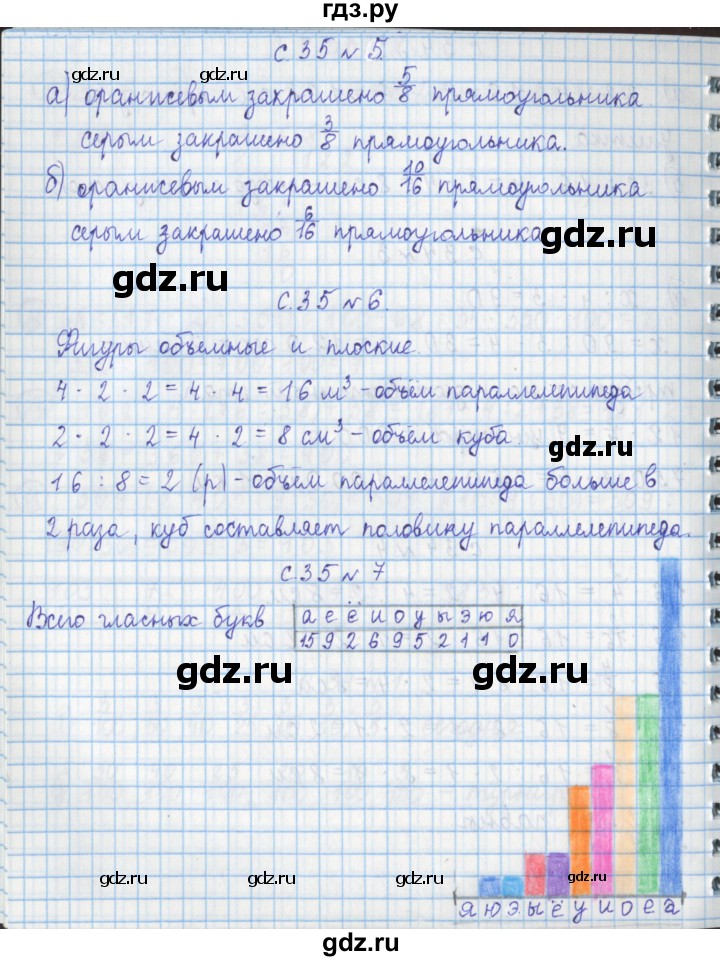 гдз.ру
с.35 № 5.
gdz.ru gdz.ru
а) оранжевым закрашено 5/8 прямоугольника
серым закрашено 3/8 прямоугольника.
gdz.ru gdz.ru gdz.ru
б) оранжевым закрашено 10/16 прямоугольника
серым закрашено 6/16 прямоугольника
gdz.ru
gdz.ru
с.35 № 6.
Фигуры объемные и плоские.
4 · 2 · 2 = 4 · 4 = 16 м³ - объём параллелепипеда
2 · 2 · 2 = 4 · 2 = 8 см³ - объём куба.
gdz.ru
16 : 8 = 2 (р) - объём параллелепипеда больше в
2 раза, куб составляет половину параллелепипеда.
с.35 № 7
Всего гласных букв
а е ё и о у ы э ю я
15 9 2 6 9 5 2 1 1 0
gdz.ru gdz.ru
gdz.ru gdz.ru gdz.ru
я ю э ы ё у и о е а
gdz.ru